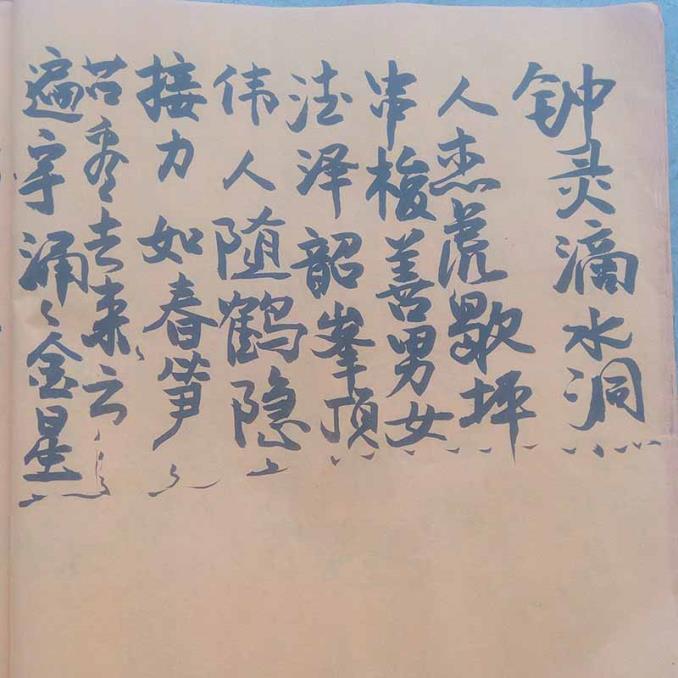 钟灵滴水洞
人杰虎歇坪
串梭善男女
泽韶峯顶
伟人随鹤隐
接力如春笋
去来云
遍宇涌金星